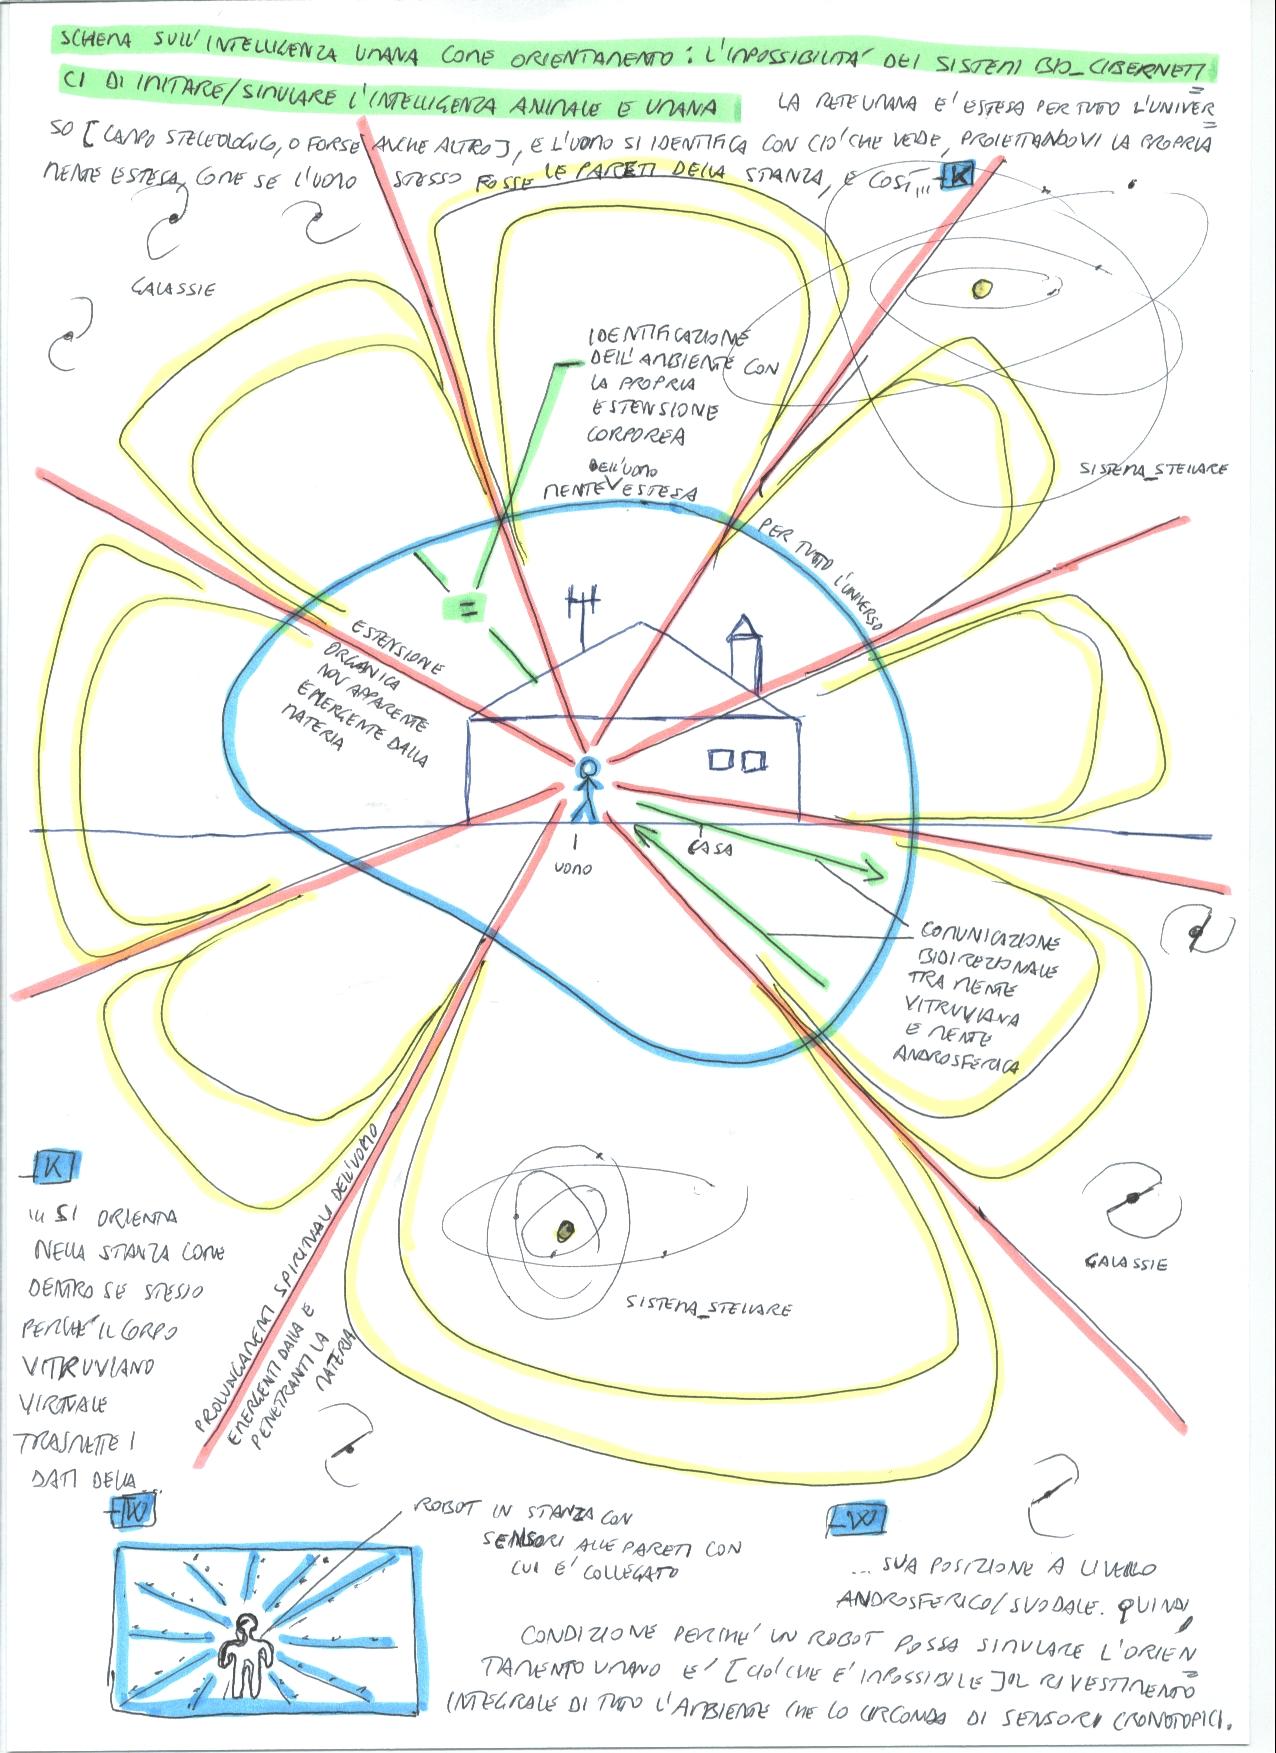 SCHEMA SULL'INTELLIGENZA UMANA COME ORIENTAMENTO: L'IMPOSSIBILITA' DEI SISTEMI BIO_CIBERNETI
CI DI IMITARE/SIMULARE L'INTELLIGENZA ANIMALE E UMANA LA RETE UMANA E' ESTESA PER TUTTO L'UNIVER=
SO [CAMPO STELEOLOGICO, O FORSE ANCHE ALTRO], E L'UOMO SI IDENTIFICA CON CIO' CHE VEDE, PROIETTANDOVI LA PROPRIA
MENTE ESTESA, COME SE L'UOMO STESSO FOSSE LE PARETI DELLA STANZA, E COSI'... K
GALASSIE
IDENTIFICAZIONE
DELL'AMBIENTE CON
LA PROPRIA
ESTENSIONE
CORPOREA
SISTEMA_STELLARE
DELL'UOMO
MENTE V ESTESA
PER TUTTO L'UNIVERSO
=
ESTENSIONE
ORGANICA
NON APPARENTE
EMERGENTE DALLA
MATERIA
CASA
UOMO
COMUNICAZIONE
BIDIREZIONALE
TRA MENTE
VITRUVIANA
E MENTE
ANDROSFERICA
K
... SI ORIENTA
NELLA STANZA COME
DENTRO SE STESSO
PERCHE' IL CORPO
VITRUVIANO
VIRTUALE
TRASMETTE I
DATI DELLA...
W
PROLUNGAMENTI SPIRITUALI DELL'UOMO
EMERGENTI DALLA E
PENETRANTI LA
MATERIA
GALASSIE
SISTEMA_STELLARE
ROBOT IN STANZA CON
SENSORI ALLE PARETI CON
CUI E' COLLEGATO
W
... SUA POSIZIONE A LIVELLO
ANDROSFERICO/SUODALE. QUINDI,
CONDIZIONE PERCHE' UN ROBOT POSSA SIMULARE L'ORIEN=
TAMENTO UMANO E' [CIO' CHE E' IMPOSSIBILE] IL RIVESTIMENTO
INTEGRALE DI TUTTO L'AMBIENTE CHE LO CIRCONDA DI SENSORI CRONOTOPICI.